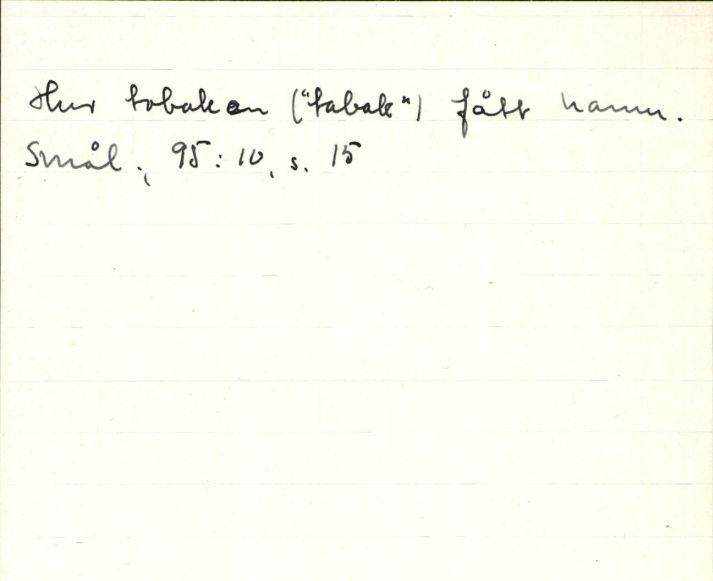 Hur tobaken ("tabak") fått namn.
Smål., 95:10, s. 15